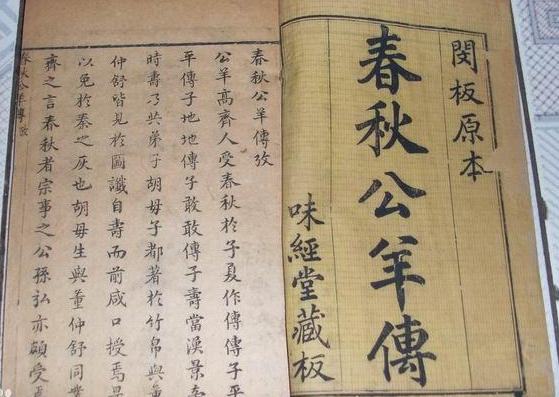 閔板原本
春秋公羊傳
味經堂藏板
春秋公羊傳攷
公羊高齊人受春秋於子夏作傳傳子平
平傳子地地傳子敢敢傳子壽當漢景
時壽乃共弟子胡毋子都著於竹帛與董
仲舒皆見於圖讖自壽而前咸口授焉
以免於秦之灰也胡毋生與董仲舒同業
齊之言春秋者宗事之公孫弘亦頗受
春秋公羊傳攷